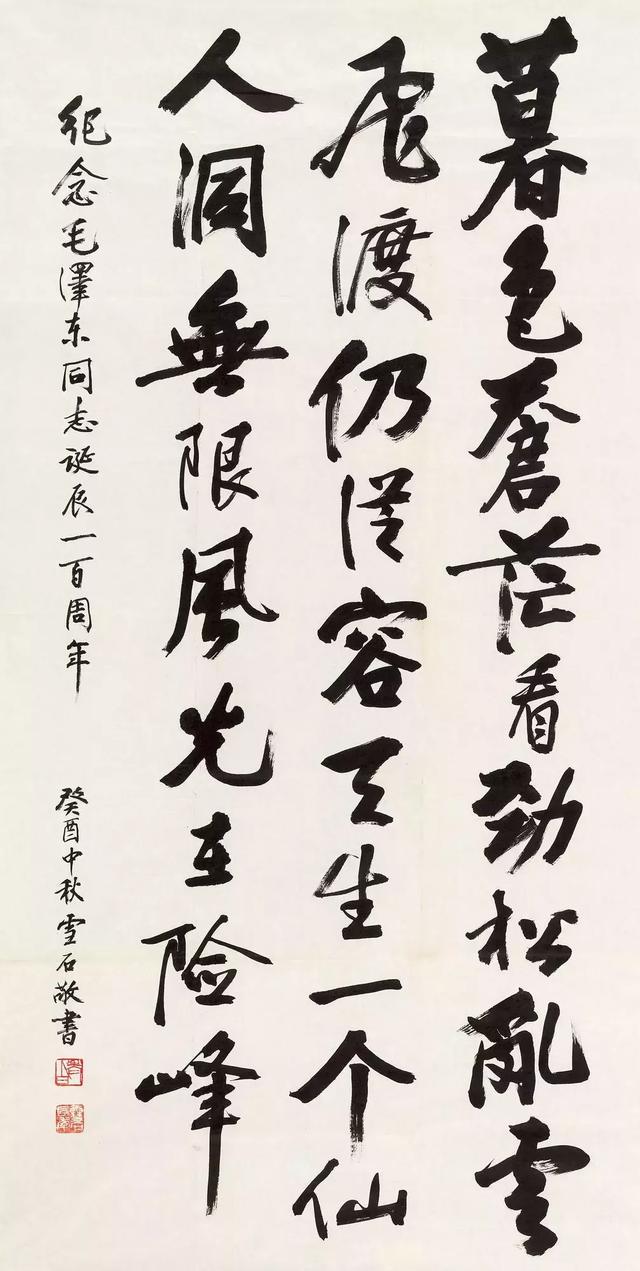 暮色蒼茫看勁松亂雲
飛渡仍從容天生一个仙
人洞無限風光在險峰
纪念毛澤东同志诞辰一百周年
癸酉中秋雪石敬書